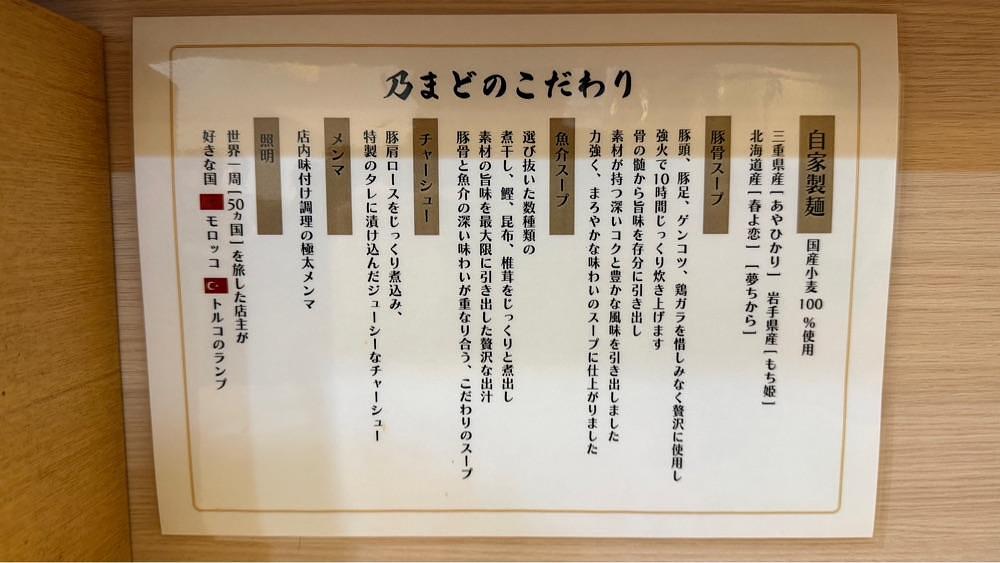 乃まどのこだわり
自家製麺 国産小麦100％使用
三重県産［あやひかり］ 岩手県産［もち姫］
北海道産［春よ恋］［夢ちから］
豚骨スープ
豚頭、豚足、ゲンコツ、鶏ガラを惜しみなく贅沢に使用し
強火で10時間じっくり炊き上げます
骨の髄から旨味を存分に引き出し
素材が持つ深いコクと豊かな風味を引き出しました
力強く、まろやかな味わいのスープに仕上がりました
魚介スープ
選び抜いた数種類の
煮干し、鰹、昆布、椎茸をじっくりと煮出し
素材の旨味を最大限に引き出した贅沢な出汁
豚骨と魚介の深い味わいが重なり合う、こだわりのスープ
チャーシュー
豚肩ロースをじっくり煮込み、
特製のタレに漬け込んだジューシーなチャーシュー
メンマ
店内味付け調理の極太メンマ
照明
世界一周［50ヵ国］を旅した店主が
好きな国 モロッコ トルコのランプ